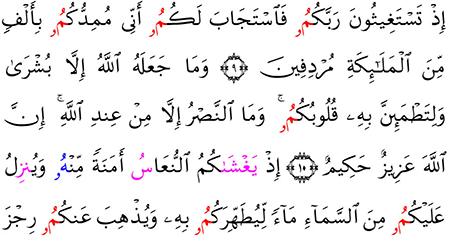 إِذْ تَسْتَغِيثُونَ رَبَّكُمُۥ فَٱسْتَجَابَ لَكُمُۥ أَنِّى مُمِدُّكُمُۥ بِأَلْفٍ
مِّنَ ٱلْمَلَـٰٓئِكَةِ مُرْدِفِينَ ۝٩ وَمَا جَعَلَهُ ٱللَّهُ إِلَّا بُشْرَىٰ
وَلِتَطْمَئِنَّ بِهِۦ قُلُوبُكُمُۥ ۚ وَمَا ٱلنَّصْرُ إِلَّا مِنْ عِندِ ٱللَّهِ ۚ إِنَّ
ٱللَّهَ عَزِيزٌ حَكِيمٌ ۝١٠ إِذْ يَغْشَىٰكُمُ ٱلنُّعَاسُ أَمَنَةً مِّنْهُۥ وَيُنزِلُ
عَلَيْكُمُۥ مِنَ ٱلسَّمَآءِ مَآءً لِّيُطَهِّرَكُمُۥ بِهِۦ وَيُذْهِبَ عَنكُمُۥ رِجْزَ